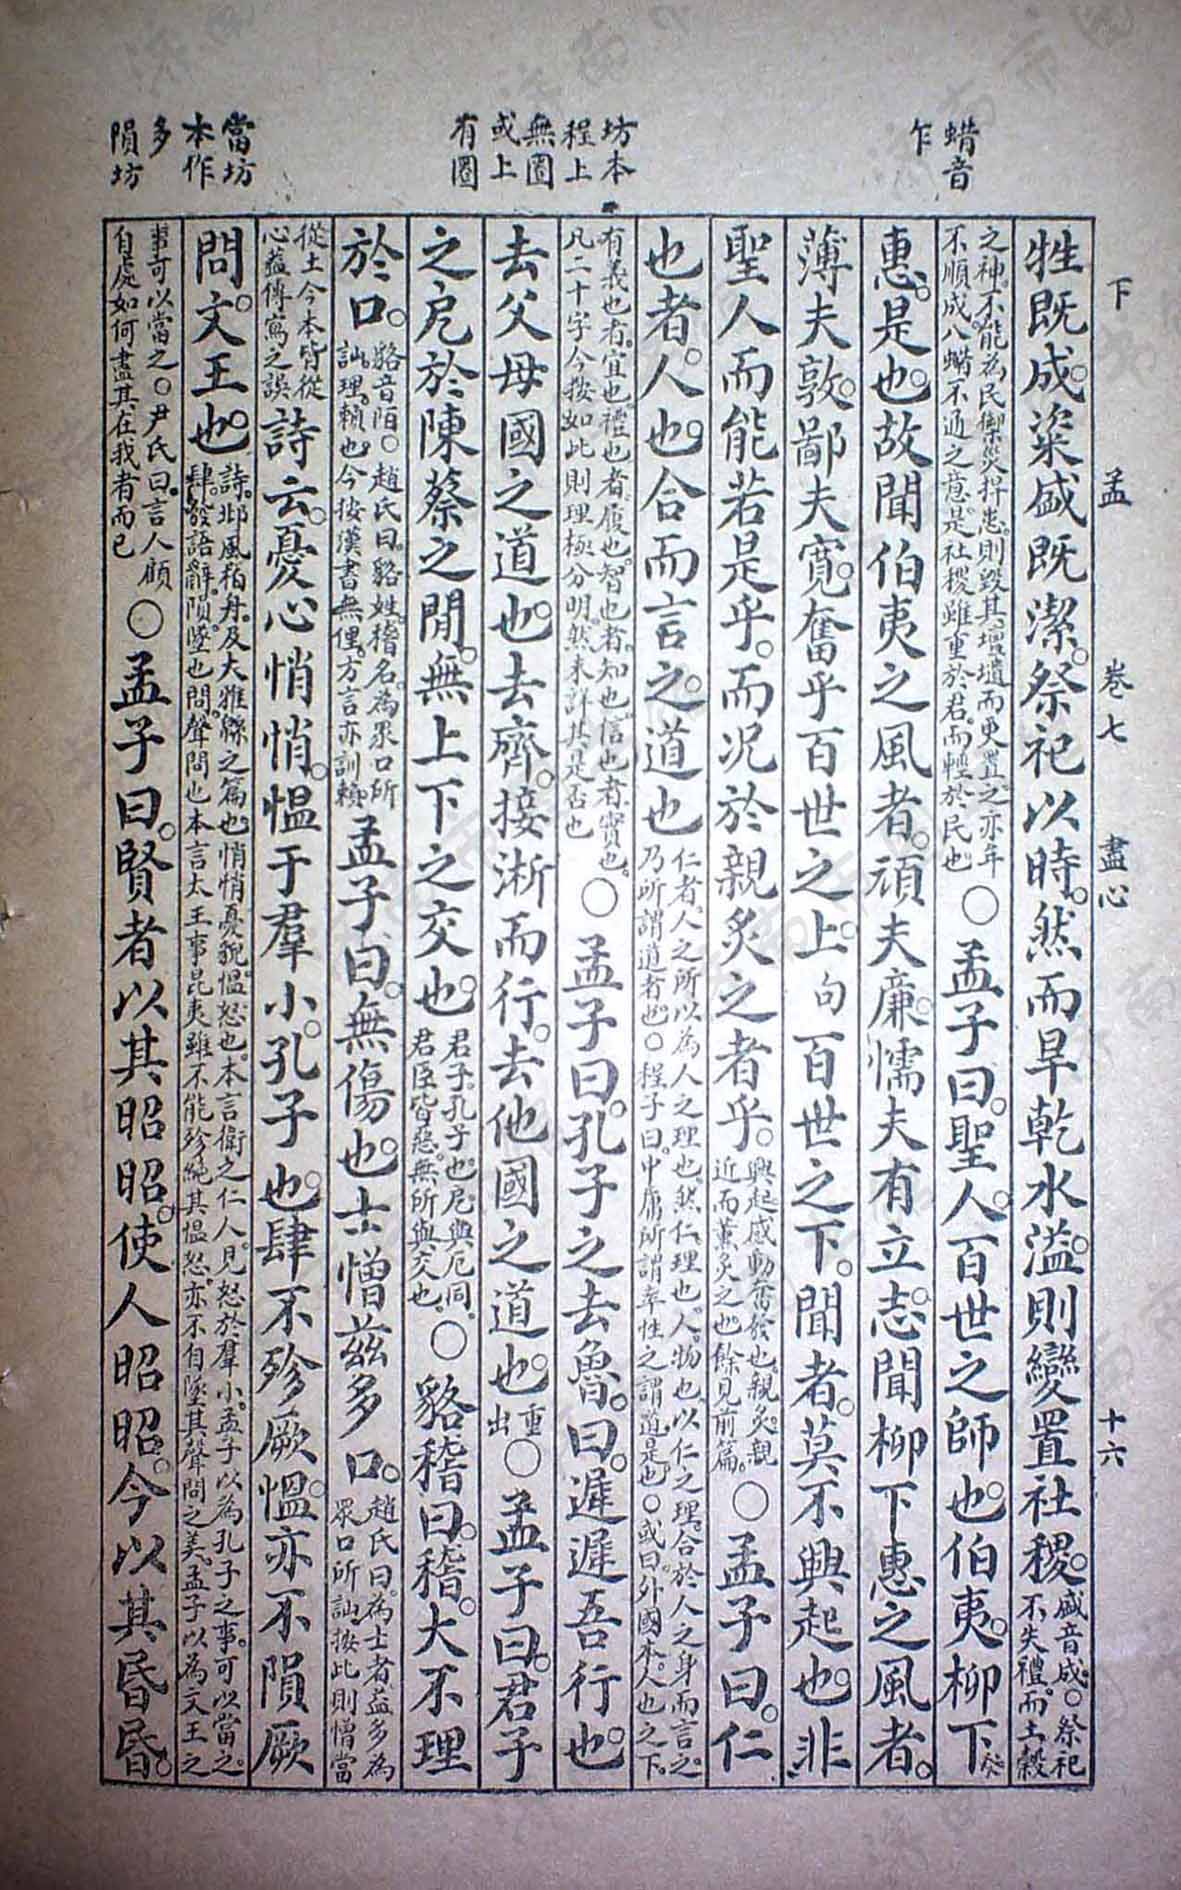 下 孟 卷七 盡心 十六
蜡音
乍
坊本
程上
無圈
或上
有圈
當坊
本作
多
隕坊
牲既成。粢盛既潔。祭祀以時。然而旱乾水溢。則變置社稷。盛音成。○祭祀不失禮。而土穀
之神。不能為民禦災捍患。則毀其壇壝而更置之。亦年不順成。八蜡不通之意。是社稷雖重於君。而輕於民也○孟子曰。聖人。百世之師也。伯夷。柳下
惠。是也。故聞伯夷之風者。頑夫廉。懦夫有立志。聞柳下惠之風者。
薄夫敦。鄙夫寬。奮乎百世之上。句百世之下。聞者。莫不興起也。非
聖人而能若是乎。而況於親炙之者乎。興起感動奮發也。親炙。親近而薰炙之也。餘見前篇。○孟子曰。仁
也者。人也。合而言之。道也仁者。人之所以為人之理也。然仁。理也。人。物也。以仁之理。合於人之身而言之。乃所謂道者也。○程子曰。中庸所謂率性之謂道是也。○或曰。外國本。人也之下。
有義也者。宜也。禮也者。履也。智也者。知也。信也者。實也。凡二十字今按如此則理極分明。然未詳其是否也○孟子曰。孔子之去魯。曰。遲遲吾行也。
去父母國之道也。去齊。接淅而行。去他國之道也。重出○孟子曰。君子
之戹於陳蔡之閒。無上下之交也。君子。孔子也。戹與厄同。君臣皆惡。無所與交也。○貉稽曰。稽。大不理
於口。貉音陌。○趙氏曰。貉姓稽名。為眾口所訕。理。賴也。今按漢書無俚。方言亦訓賴孟子曰。無傷也。士憎茲多口。趙氏曰。為士者益多為眾口所訕。按此則憎當
從土今本皆從心蓋傳寫之誤詩云。憂心悄悄。慍于羣小。孔子也。肆不殄厥慍。亦不隕厥
問。文王也。詩。邶風柏舟。及大雅緜之篇也。悄悄憂貌。慍。怒也。本言衛之仁人。見怒於羣小。孟子以為孔子之事。可以當之。肆。發語辭。隕。墜也。問。聲問也本言太王事昆夷雖不能殄絶其慍怒。亦不自墜其聲問之美。孟子以為文王之
事可以當之。○尹氏曰。言人顧自處如何盡其在我者而已○孟子曰。賢者以其昭昭。使人昭昭。今以其昏昏。